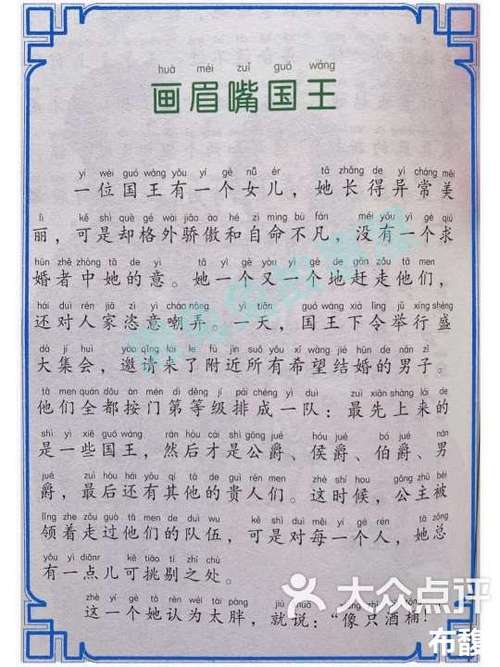 huà méi zuǐ guó wáng
画眉嘴国王
yí wèi guó wáng yǒu yí gè nǚ ér tā zhǎng de yì cháng měi
一位国王有一个女儿，她长得异常美
lì kě shì què gé wài jiāo ào hé zì mìng bù fán méi yǒu yí gè qiú
丽，可是却格外骄傲和自命不凡，没有一个求
hūn zhě zhòng tā de yì tā yí gè yòu yí gè de gǎn zǒu tā men
婚者中她的意。她一个又一个地赶走他们，
hái duì rén jiā zì yì cháo nòng yì tiān guó wáng xià lìng jǔ xíng shèng
还对人家恣意嘲弄。一天，国王下令举行盛
dà jí huì yāo qǐng lái le fù jìn suǒ yǒu xī wàng jié hūn de nán zǐ
大集会，邀请来了附近所有希望结婚的男子。
tā men quán dōu àn mén dì děng jí pái chéng yí duì zuì xiān shàng lái de
他们全都按门第等级排成一队：最先上来的
shì yì xiē guó wáng rán hòu cái shì gōng jué hóu jué bó jué nán
是一些国王，然后才是公爵、侯爵、伯爵、男
jué zuì hòu hái yǒu qí tā de guì rén men zhè shí hou gōng zhǔ bèi
爵，最后还有其他的贵人们。这时候，公主被
lǐng zhe zǒu guò tā men de duì wu kě shì duì měi yí gè rén tā zǒng
领着走过他们的队伍，可是对每一个人，她总
yǒu yì diǎnr kě tiāo tì zhī chù
有一点儿可挑剔之处。
zhè yí gè tā rèn wéi tài pàng jiù shuō xiàng zhī jiǔ tǒng
这一个她认为太胖，就说：“像只酒桶！
大众点评
布馥